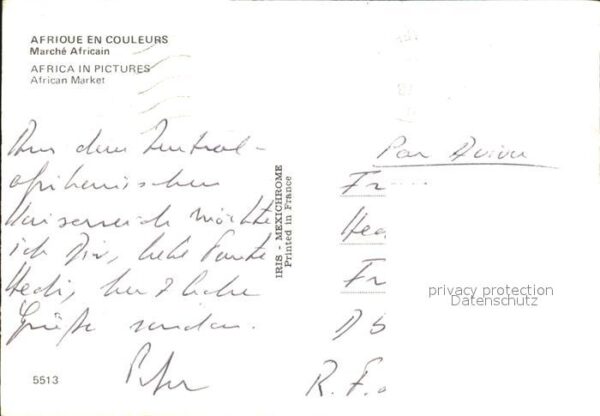 AFRIQUE EN COULEURS
Marché Africain
AFRICA IN PICTURES
African Market
Aus dem Zentral-
afrikanischen
Kaiserreich möchte
ich Dir, liebe Tante
Hedi, herzliche
Grüße senden.
Peter
5513
IRIS - MEXICHROME
Printed in France
Par Avion
Fr
Hed
Fr
D 
R. F.
privacy protection
Datenschutz